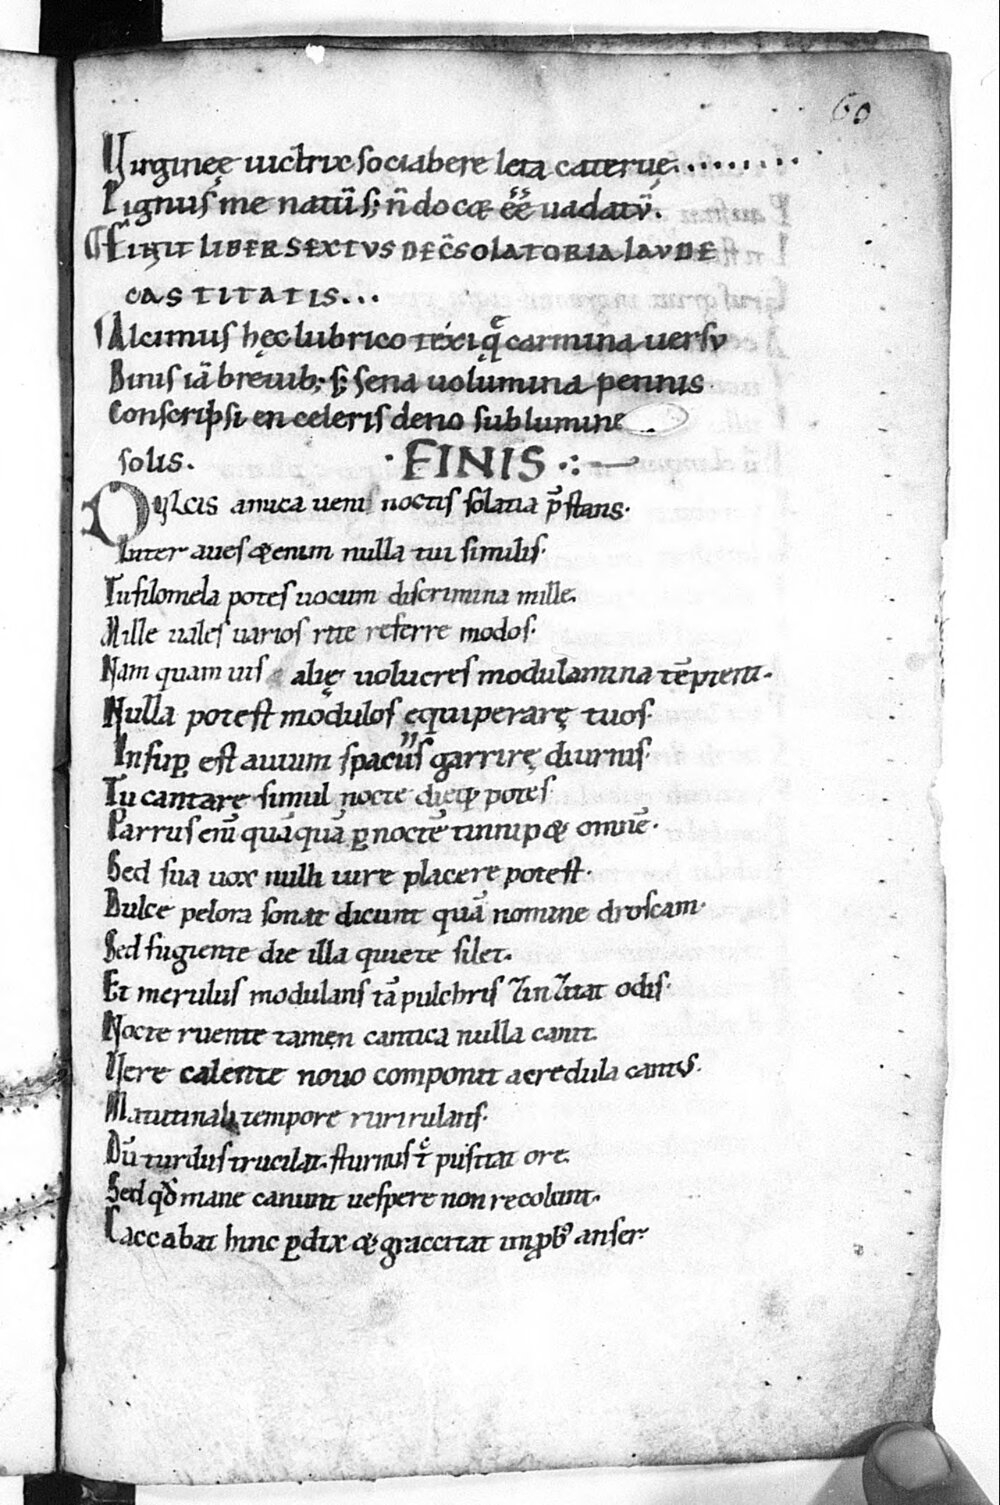 60
Virgineę uictrix sociabere leta cateruę........
Pignus me natū s; n̄ docæ eē uadatū.
Finit LIBER SEXTVS DE C̄SOLATORIA LAVDE
CASTITATIS...
Alcimus hęc lubrico texiq; carmina uersv
Binis iā breuib; s; sena uolumina pennis
Conscripsi en celeris deno sub lumine
solis.
·FINIS·:·
Dulcis amica ueni noctis solatia p̄stans·
Inter aues &enim nulla tui similis·
Tu filomela potes uocum discrimina mille.
Mille uales uarios rite referre modos·
Nam quam uis alię uolucres modulamina tēptent·
Nulla potest modulos equiperarę tuos·
Insuꝑ est auium spaciis garrirę diurnis·
Tu cantare simul nocte dieq; potes·
Parrus eni quāquā ꝑ noctē tinnip& omnē·
Sed sua uox nulli iure placere potest·
Dulce pelora sonat dicunt quā nomine droscam·
Sed fugiente die illa quiete silet.
Et merulus modulans tā pulchris zinzitat odis·
Nocte ruente tamen cantica nulla canit.
Vere calente nouo componit aeredula cantus·
Matutinali tempore rurirulans·
Dū turdus trucilat. sturnus t̄ pusitat ore.
Sed qđ mane canunt uespere non recolunt·
Caccabat hinc ꝑdix & graccitat inprob; anser·